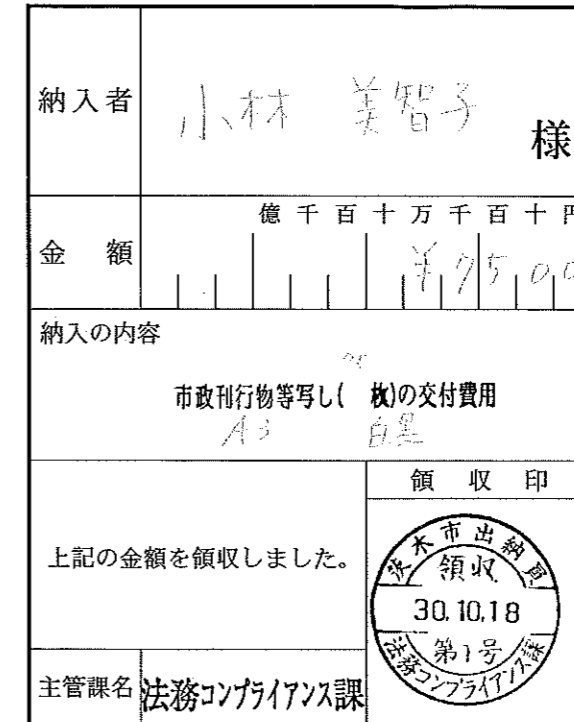 納入者
小林 美智子 様
億千百十万千百十円
金額 ¥7500
納入の内容
市政刊行物等写し( 枚)の交付費用
A3 白黒
領収印
上記の金額を領収しました。
茨木市出納員
領収
30.10.18
第1号
法務コンプライアンス課
主管課名 法務コンプライアンス課